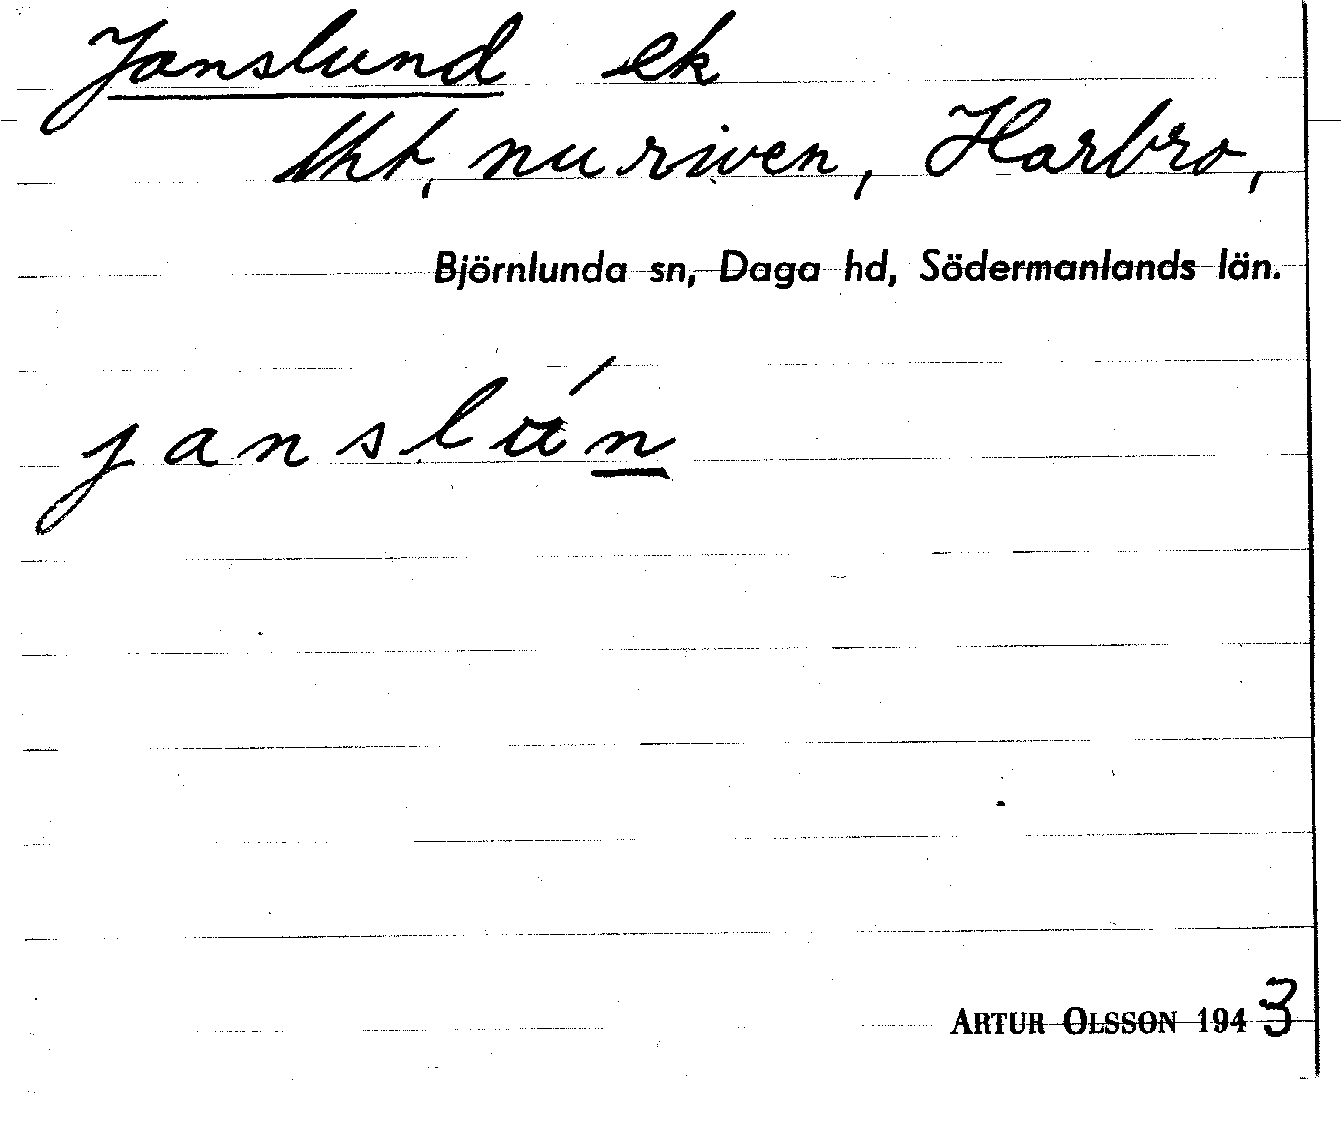 Janslund ek
lht, nu riven, Harbro,
Björnlunda sn, Daga hd, Södermanlands län.
janslún
ARTUR OLSSON 1943